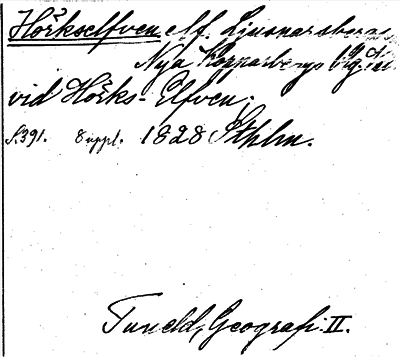 Hörkselfven elf. Ljusnarsbergs
Nya Kopparbergs
vid Hörks-Elfven.
S. 391. 8 uppl. 1828 Sthlm.
Tuneld, Geografi. II.